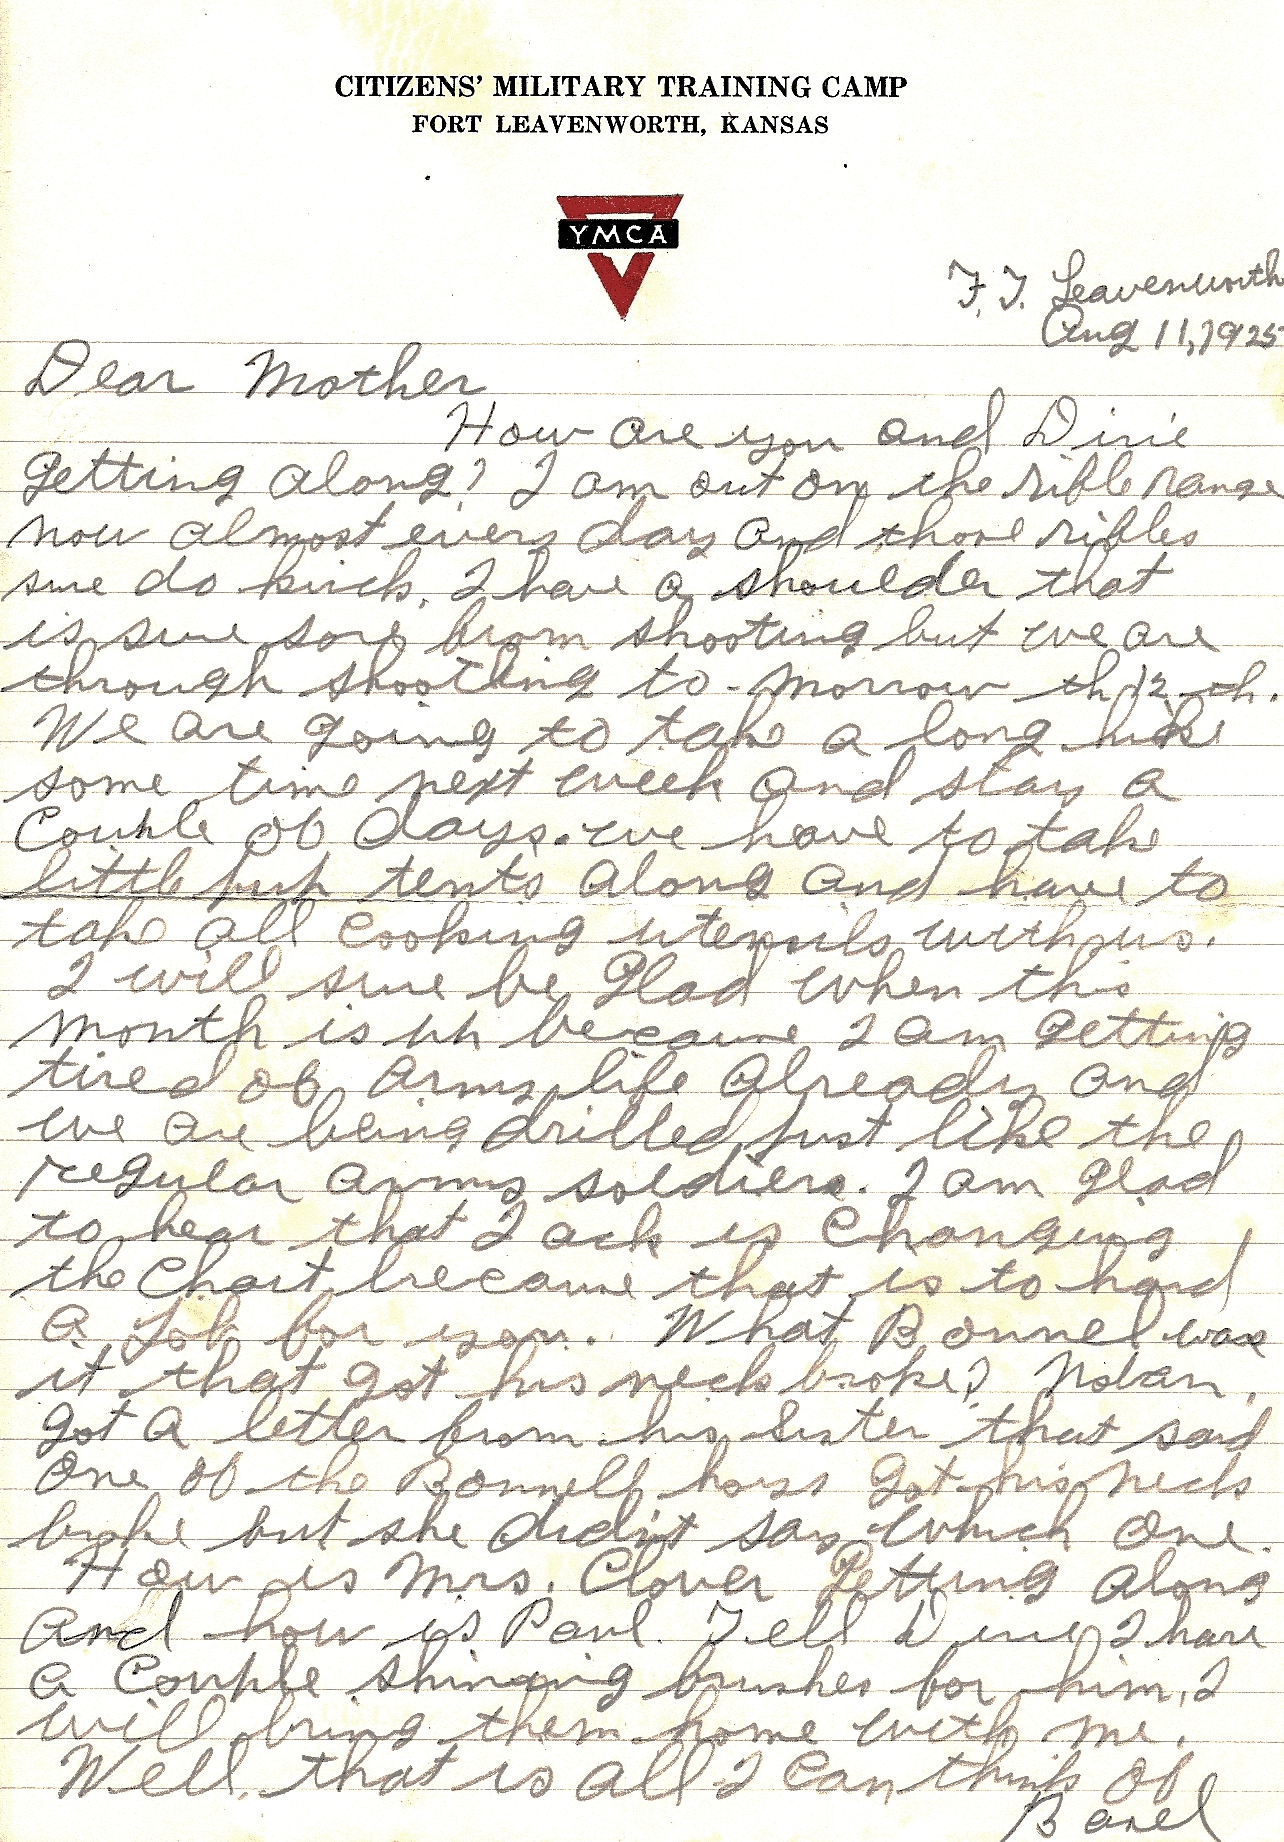 CITIZENS' MILITARY TRAINING CAMP
FORT LEAVENWORTH, KANSAS
YMCA
F.T. Leavenworth
Aug 11, 1925
Dear Mother
How are you and
getting along? I am out on the rifle range
now almost every day and those rifles
sure do kick. I have a shoulder that
is sure sore from shooting but we are
through shooting to-morrow th 12-th.
We are going to take a long hike
some time next week and stay a
Couple of days. we have to take
little pup tents along and have to
take all cooking utensils with us.
I will sure be Glad when this
month is up because I am getting
tired of army life already and
we are being drilled just like the
regular army soldiers. I am Glad
to hear that Jack is Changing
the Chart because that is to hard
a Job for you. What Bonnel was
it that got his neck broke?
got a letter from his sister that said
one of the Bonnell boys got his neck
broke but she didn't say which one.
How is Mrs. Clover Getting along
And how is Paul. Tell I have
a Couple shining brushes for him, I
will bring them home with me.
Well, that is all I can think of